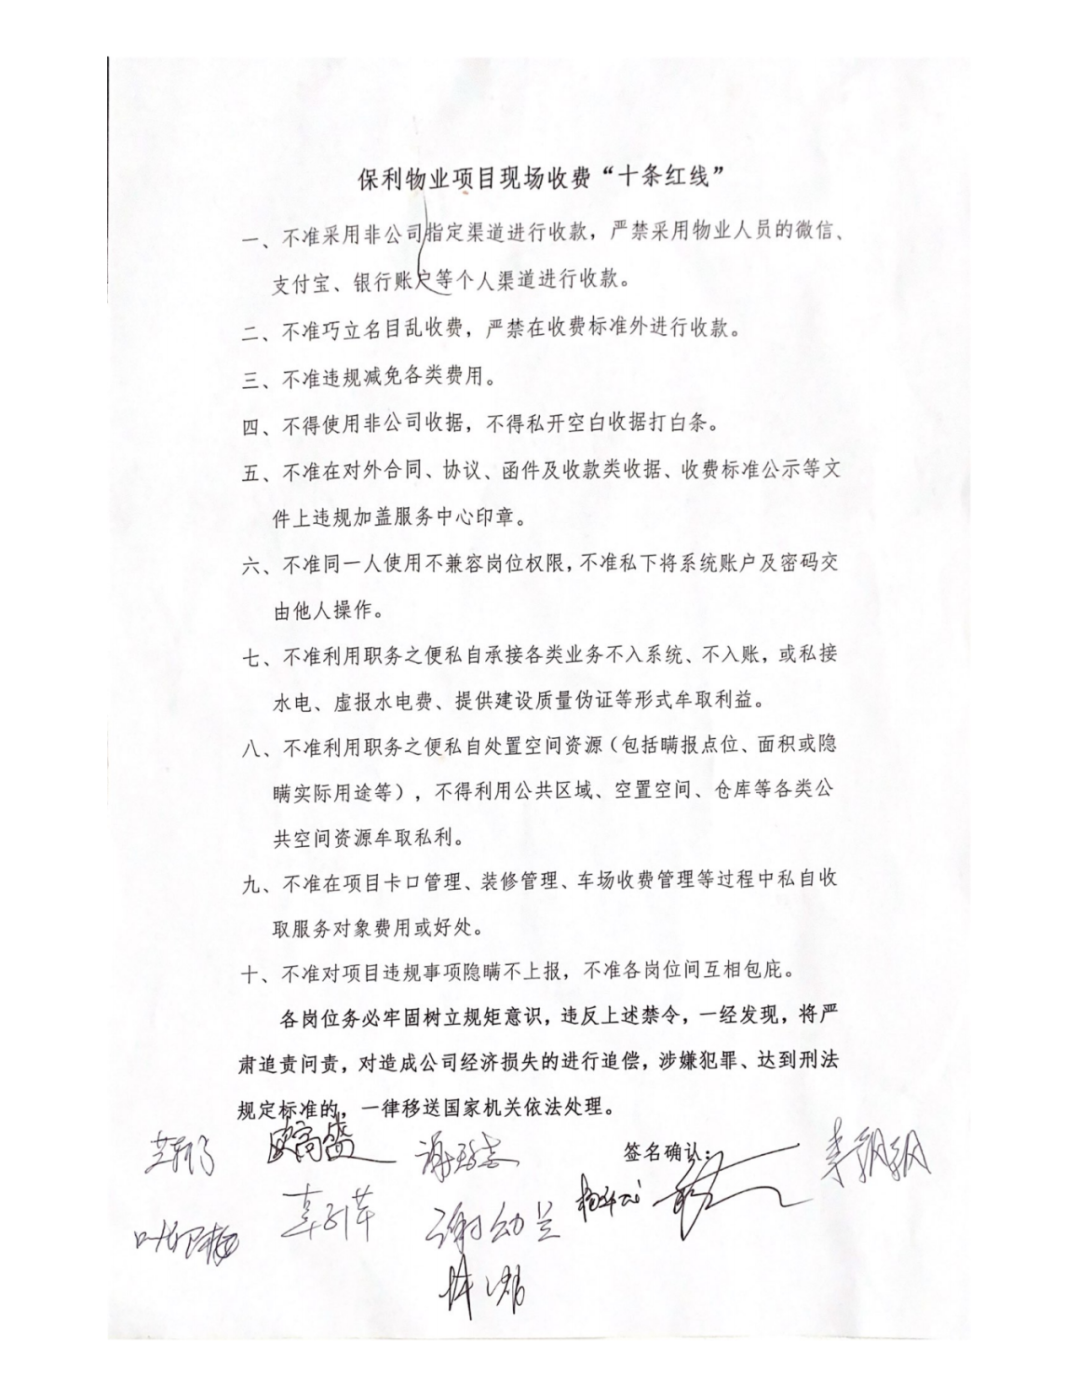 保利物业项目现场收费“十条红线”
一、不准采用非公司指定渠道进行收款，严禁采用物业人员的微信、
支付宝、银行账户等个人渠道进行收款。
二、不准巧立名目乱收费，严禁在收费标准外进行收款。
三、不准违规减免各类费用。
四、不得使用非公司收据，不得私开空白收据打白条。
五、不准在对外合同、协议、函件及收款类收据、收费标准公示等文
件上违规加盖服务中心印章。
六、不准同一人使用不兼容岗位权限，不准私下将系统账户及密码交
由他人操作。
七、不准利用职务之便私自承接各类业务不入系统、不入账，或私接
水电、虚报水电费、提供建设质量伪证等形式牟取利益。
八、不准利用职务之便私自处置空间资源（包括瞒报点位、面积或隐
瞒实际用途等），不得利用公共区域、空置空间、仓库等各类公
共空间资源牟取私利。
九、不准在项目卡口管理、装修管理、车场收费管理等过程中私自收
取服务对象费用或好处。
十、不准对项目违规事项隐瞒不上报，不准各岗位间互相包庇。
各岗位务必牢固树立规矩意识，违反上述禁令，一经发现，将严
肃追责问责，对造成公司经济损失的进行追偿，涉嫌犯罪、达到刑法
规定标准的，一律移送国家机关依法处理。
签名确认：
谢幼兰